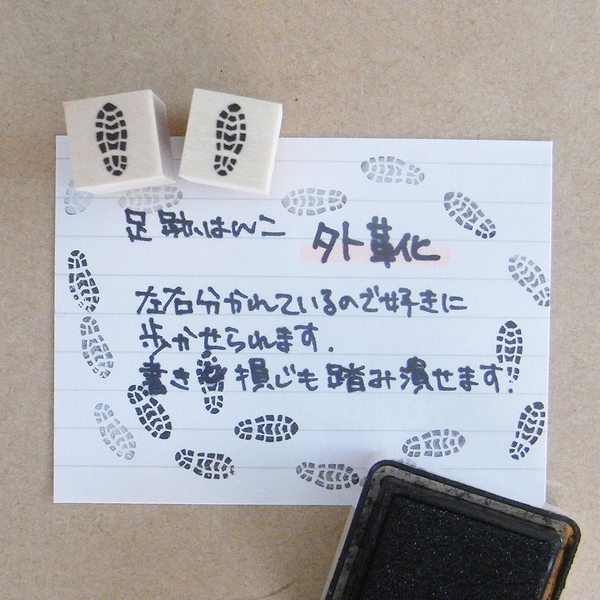 足跡はんこ 外靴
左右分かれているので好きに
歩かせられます.
書き損じも踏み潰せます!